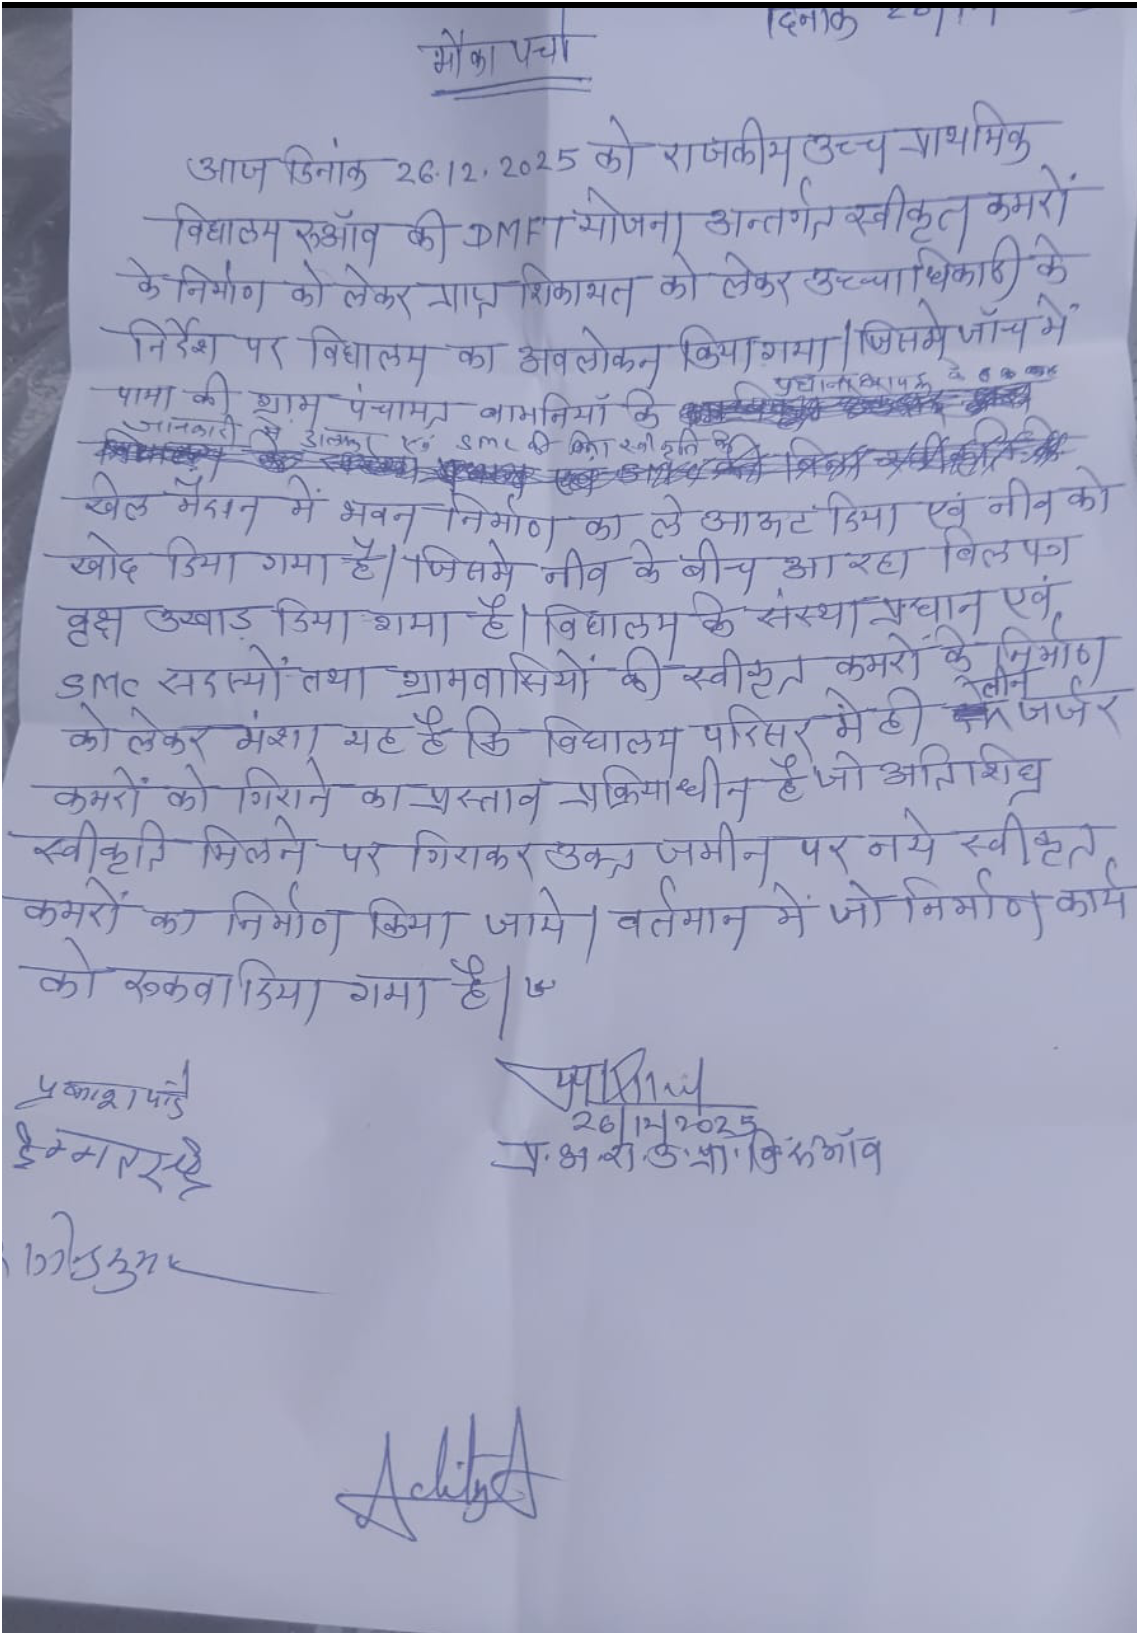 दिनांक
मौका पर्चा
आज दिनांक 26.12.2025 को राजकीय उच्च प्राथमिक
विद्यालय रुऑव की DMFT योजना अन्तर्गत स्वीकृत कमरों
के निर्माण को लेकर प्राप्त शिकायत को लेकर उच्चाधिकारी के
निर्देश पर विद्यालय का अवलोकन किया गया। जिसमे जॉच में
पाया की ग्राम पंचायत बामनियॉ के प्रधानाध्यापक के
जानकारी में डालकर एवं SMC की बिना स्वीकृति के
खेल मैदान में भवन निर्माण का ले आऊट दिया एवं नीव को
खोद दिया गया है। जिसमे नीव के बीच आ रहा बिलपत्र
वृक्ष उखाड़ दिया गया है। विद्यालय के संस्था प्रधान एवं
SMC सदस्यों तथा ग्रामवासियों की स्वीकृत कमरों के निर्माण
को लेकर मंशा यह है कि विद्यालय परिसर मे ही तीन जर्जर
कमरों को गिराने का प्रस्ताव प्रक्रियाधीन है जो अतिशिघ्र
स्वीकृति मिलने पर गिराकर उक्त जमीन पर नये स्वीकृत
कमरों का निर्माण किया जाये। वर्तमान में जो निर्माण कार्य
को रुकवा दिया गया है।
प्रकाश पांडे
26/12/2025
प्र.अ.रा.उ.प्रा.वि.रुऑव
हिम्मतसिंह
Aditya